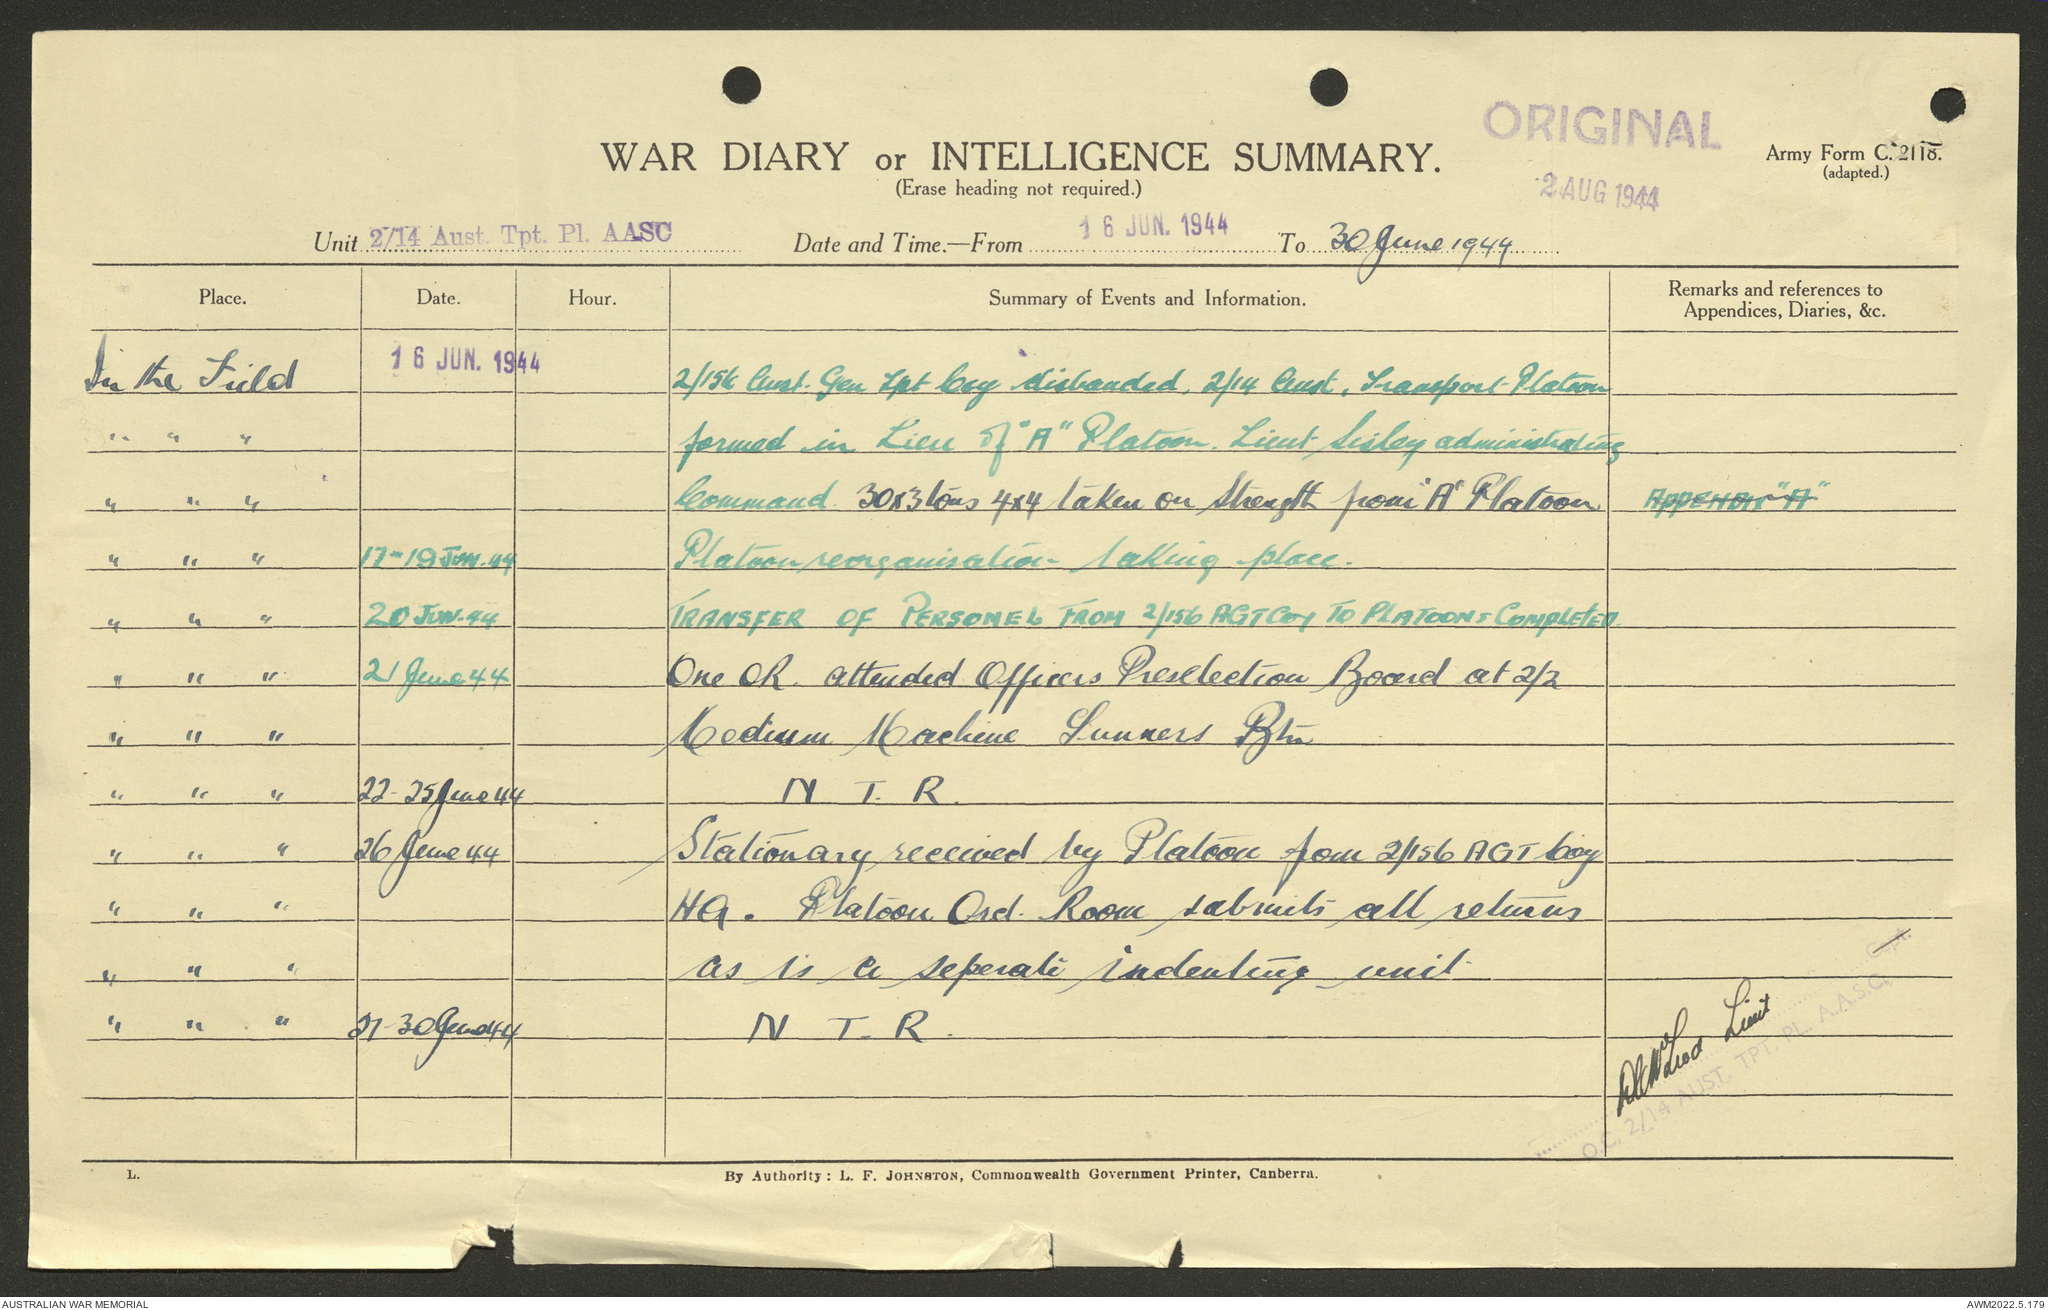 ORIGINAL
WAR DIARY or INTELLIGENCE SUMMARY.
Army Form C. 2118.
(adapted.)
(Erase heading not required.)
2 AUG 1944
Unit 2/14 Aust. Tpt. Pl. AASC Date and Time.—From 16 JUN. 1944 To 30 June 1944
Place. Date. Hour. Summary of Events and Information. Remarks and references to
Appendices, Diaries, &c.
In the Field 16 JUN. 1944 2/156 Aust. Gen Tpt Coy disbanded, 2/14 Aust. Transport Platoon
" " " formed in Lieu of "A" Platoon. Lieut Sisley administrating
" " " Command. 30x3 tons 4x4 taken on Strength from "A" Platoon APPENDIX "A"
" " " 17-19 JUN.44 Platoon reorganisation taking place.
" " " 20 JUN.44 TRANSFER OF PERSONEL FROM 2/156 AGT Coy TO PLATOONS COMPLETED.
" " " 21 June 44 One OR. attended Officers Preselection Board at 2/2
" " " Medium Machine Gunners Btn
" " " 22-25 June 44 N T. R.
" " " 26 June 44 Stationary received by Platoon from 2/156 AGT Coy
" " " HQ. Platoon Ord. Room submits all returns
" " " as is a seperate indenting unit
" " " 27-30 June 44 N T. R.
Lieut
Capt.
O.C. 2/14 AUST. TPT. PL. A.A.S.C.
L. By Authority: L. F. JOHNSTON, Commonwealth Government Printer, Canberra.
AUSTRALIAN WAR MEMORIAL AWM2022.5.179